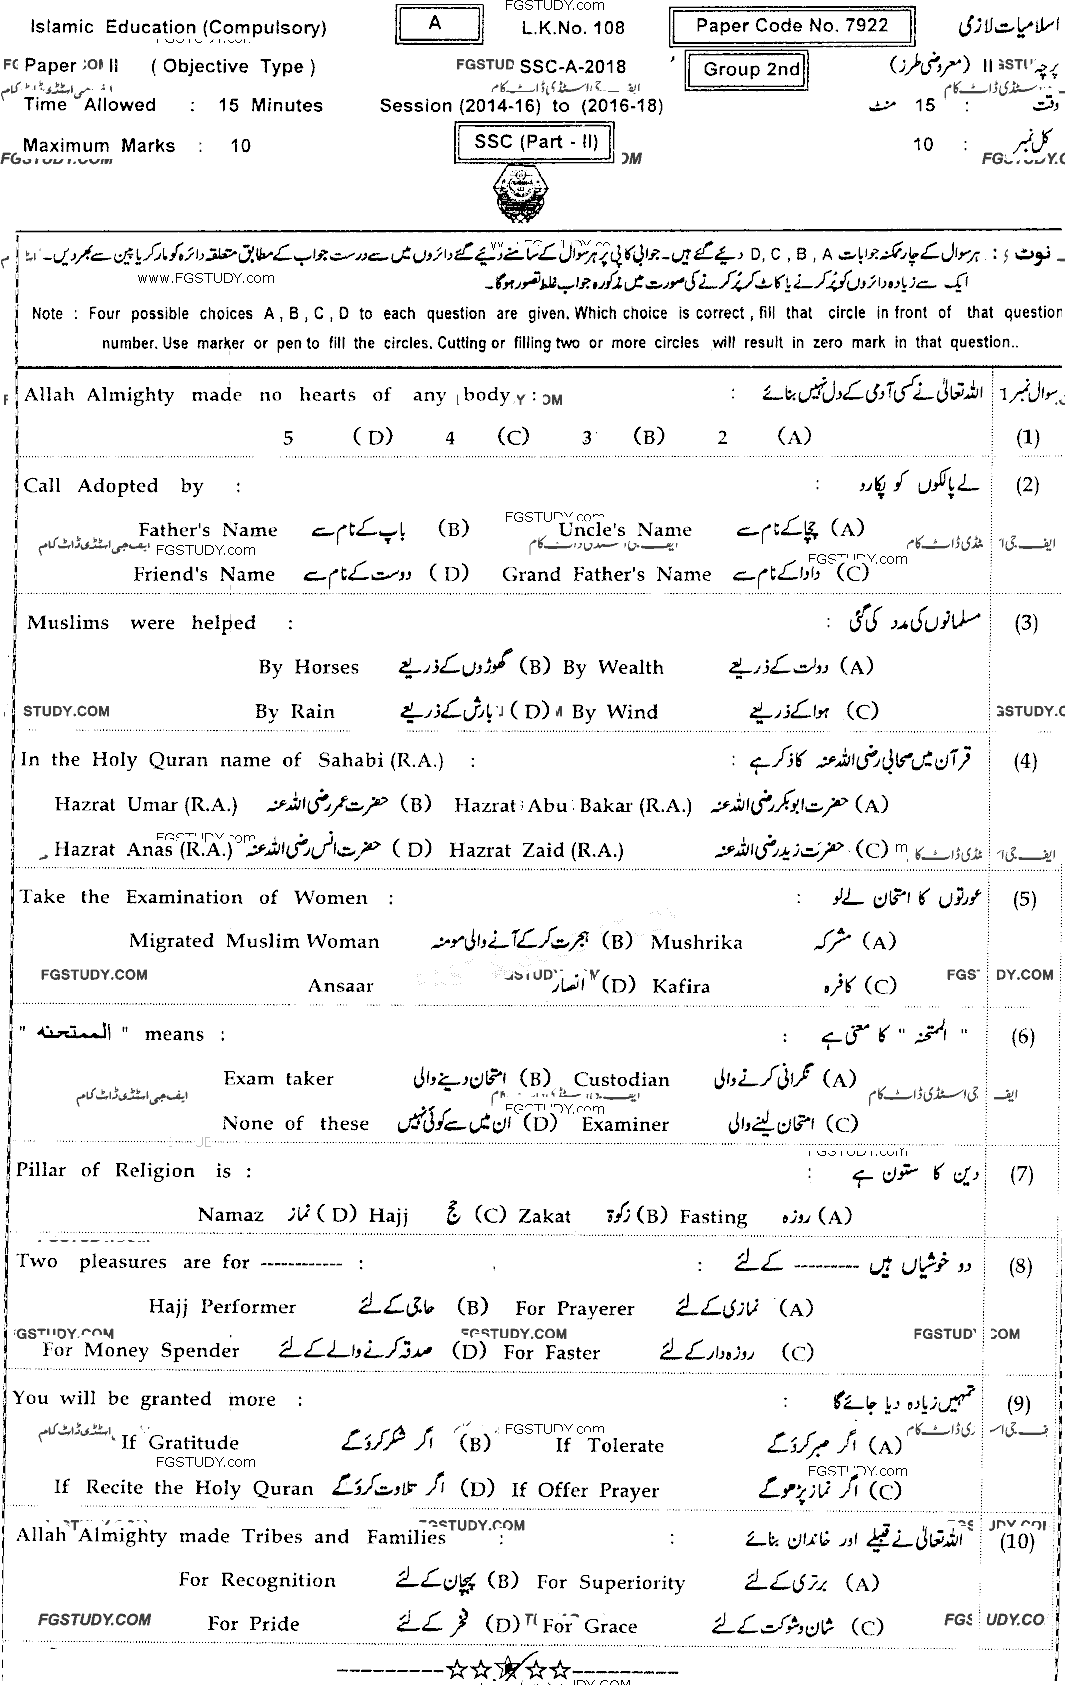 Islamic Education (Compulsory) A L.K.No. 108 Paper Code No. 7922 اسلامیات لازمی
FGSTUDY.com
Paper II ( Objective Type ) SSC-A-2018 Group 2nd پرچہ II (معروضی طرز)
Time Allowed : 15 Minutes Session (2014-16) to (2016-18) وقت : 15 منٹ
Maximum Marks : 10 SSC (Part - II) کل نمبر : 10
نوٹ : ہر سوال کے چار ممکنہ جوابات A , B , C , D دیئے گئے ہیں۔ جوابی کاپی پر ہر سوال کے سامنے دیئے گئے دائروں میں سے درست جواب کے مطابق متعلقہ دائرہ کو مارکر یا پین سے بھر دیں۔
ایک سے زیادہ دائروں کو پُر کرنے یا کاٹ کر پُر کرنے کی صورت میں مذکورہ جواب غلط تصور ہوگا۔
www.FGSTUDY.com
Note : Four possible choices A , B , C , D to each question are given. Which choice is correct , fill that circle in front of that question
number. Use marker or pen to fill the circles. Cutting or filling two or more circles will result in zero mark in that question..
Allah Almighty made no hearts of any body : اللہ تعالیٰ نے کسی آدمی کے دل نہیں بنائے : سوال نمبر 1
5 (D) 4 (C) 3 (B) 2 (A) (1)
Call Adopted by : لے پالکوں کو پکارو : (2)
Father's Name باپ کے نام سے (B) Uncle's Name چچا کے نام سے (A)
Friend's Name دوست کے نام سے (D) Grand Father's Name دادا کے نام سے (C)
Muslims were helped : مسلمانوں کی مدد کی گئی : (3)
By Horses گھوڑوں کے ذریعے (B) By Wealth دولت کے ذریعے (A)
By Rain بارش کے ذریعے (D) By Wind ہوا کے ذریعے (C)
In the Holy Quran name of Sahabi (R.A.) : قرآن میں صحابی رضی اللہ عنہ کا ذکر ہے : (4)
Hazrat Umar (R.A.) حضرت عمر رضی اللہ عنہ (B) Hazrat Abu Bakar (R.A.) حضرت ابوبکر رضی اللہ عنہ (A)
Hazrat Anas (R.A.) حضرت انس رضی اللہ عنہ (D) Hazrat Zaid (R.A.) حضرت زید رضی اللہ عنہ (C)
Take the Examination of Women : عورتوں کا امتحان لے لو : (5)
Migrated Muslim Woman ہجرت کر کے آنے والی مومنہ (B) Mushrika مشرکہ (A)
Ansaar انصار (D) Kafira کافرہ (C)
FGSTUDY.COM
" الممتحنه " means : " الممتحنہ " کا معنی ہے : (6)
Exam taker امتحان دینے والی (B) Custodian نگرانی کرنے والی (A)
None of these ان میں سے کوئی نہیں (D) Examiner امتحان لینے والی (C)
Pillar of Religion is : دین کا ستون ہے : (7)
Namaz نماز (D) Hajj حج (C) Zakat زکوٰۃ (B) Fasting روزہ (A)
Two pleasures are for ------------ : دو خوشیاں ہیں --------- کے لئے : (8)
Hajj Performer حاجی کے لئے (B) For Prayerer نمازی کے لئے (A)
For Money Spender صدقہ کرنے والے کے لئے (D) For Faster روزہ دار کے لئے (C)
You will be granted more : تمہیں زیادہ دیا جائے گا : (9)
If Gratitude اگر شکر کرو گے (B) If Tolerate اگر صبر کرو گے (A)
If Recite the Holy Quran اگر تلاوت کرو گے (D) If Offer Prayer اگر نماز پڑھو گے (C)
Allah Almighty made Tribes and Families : اللہ تعالیٰ نے قبیلے اور خاندان بنائے : (10)
For Recognition پہچان کے لئے (B) For Superiority برتری کے لئے (A)
For Pride فخر کے لئے (D) For Grace شان و شوکت کے لئے (C)
FGSTUDY.COM